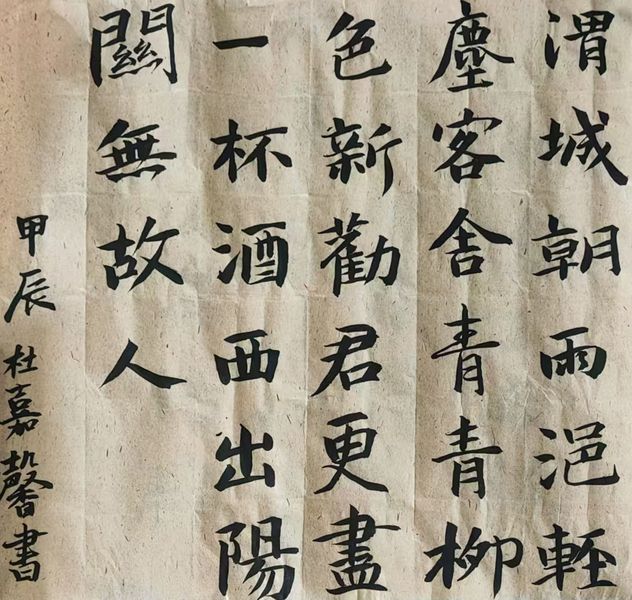 渭城朝雨浥輕
塵客舍青青柳
色新勸君更盡
一杯酒西出陽
關無故人
甲辰杜嘉馨書